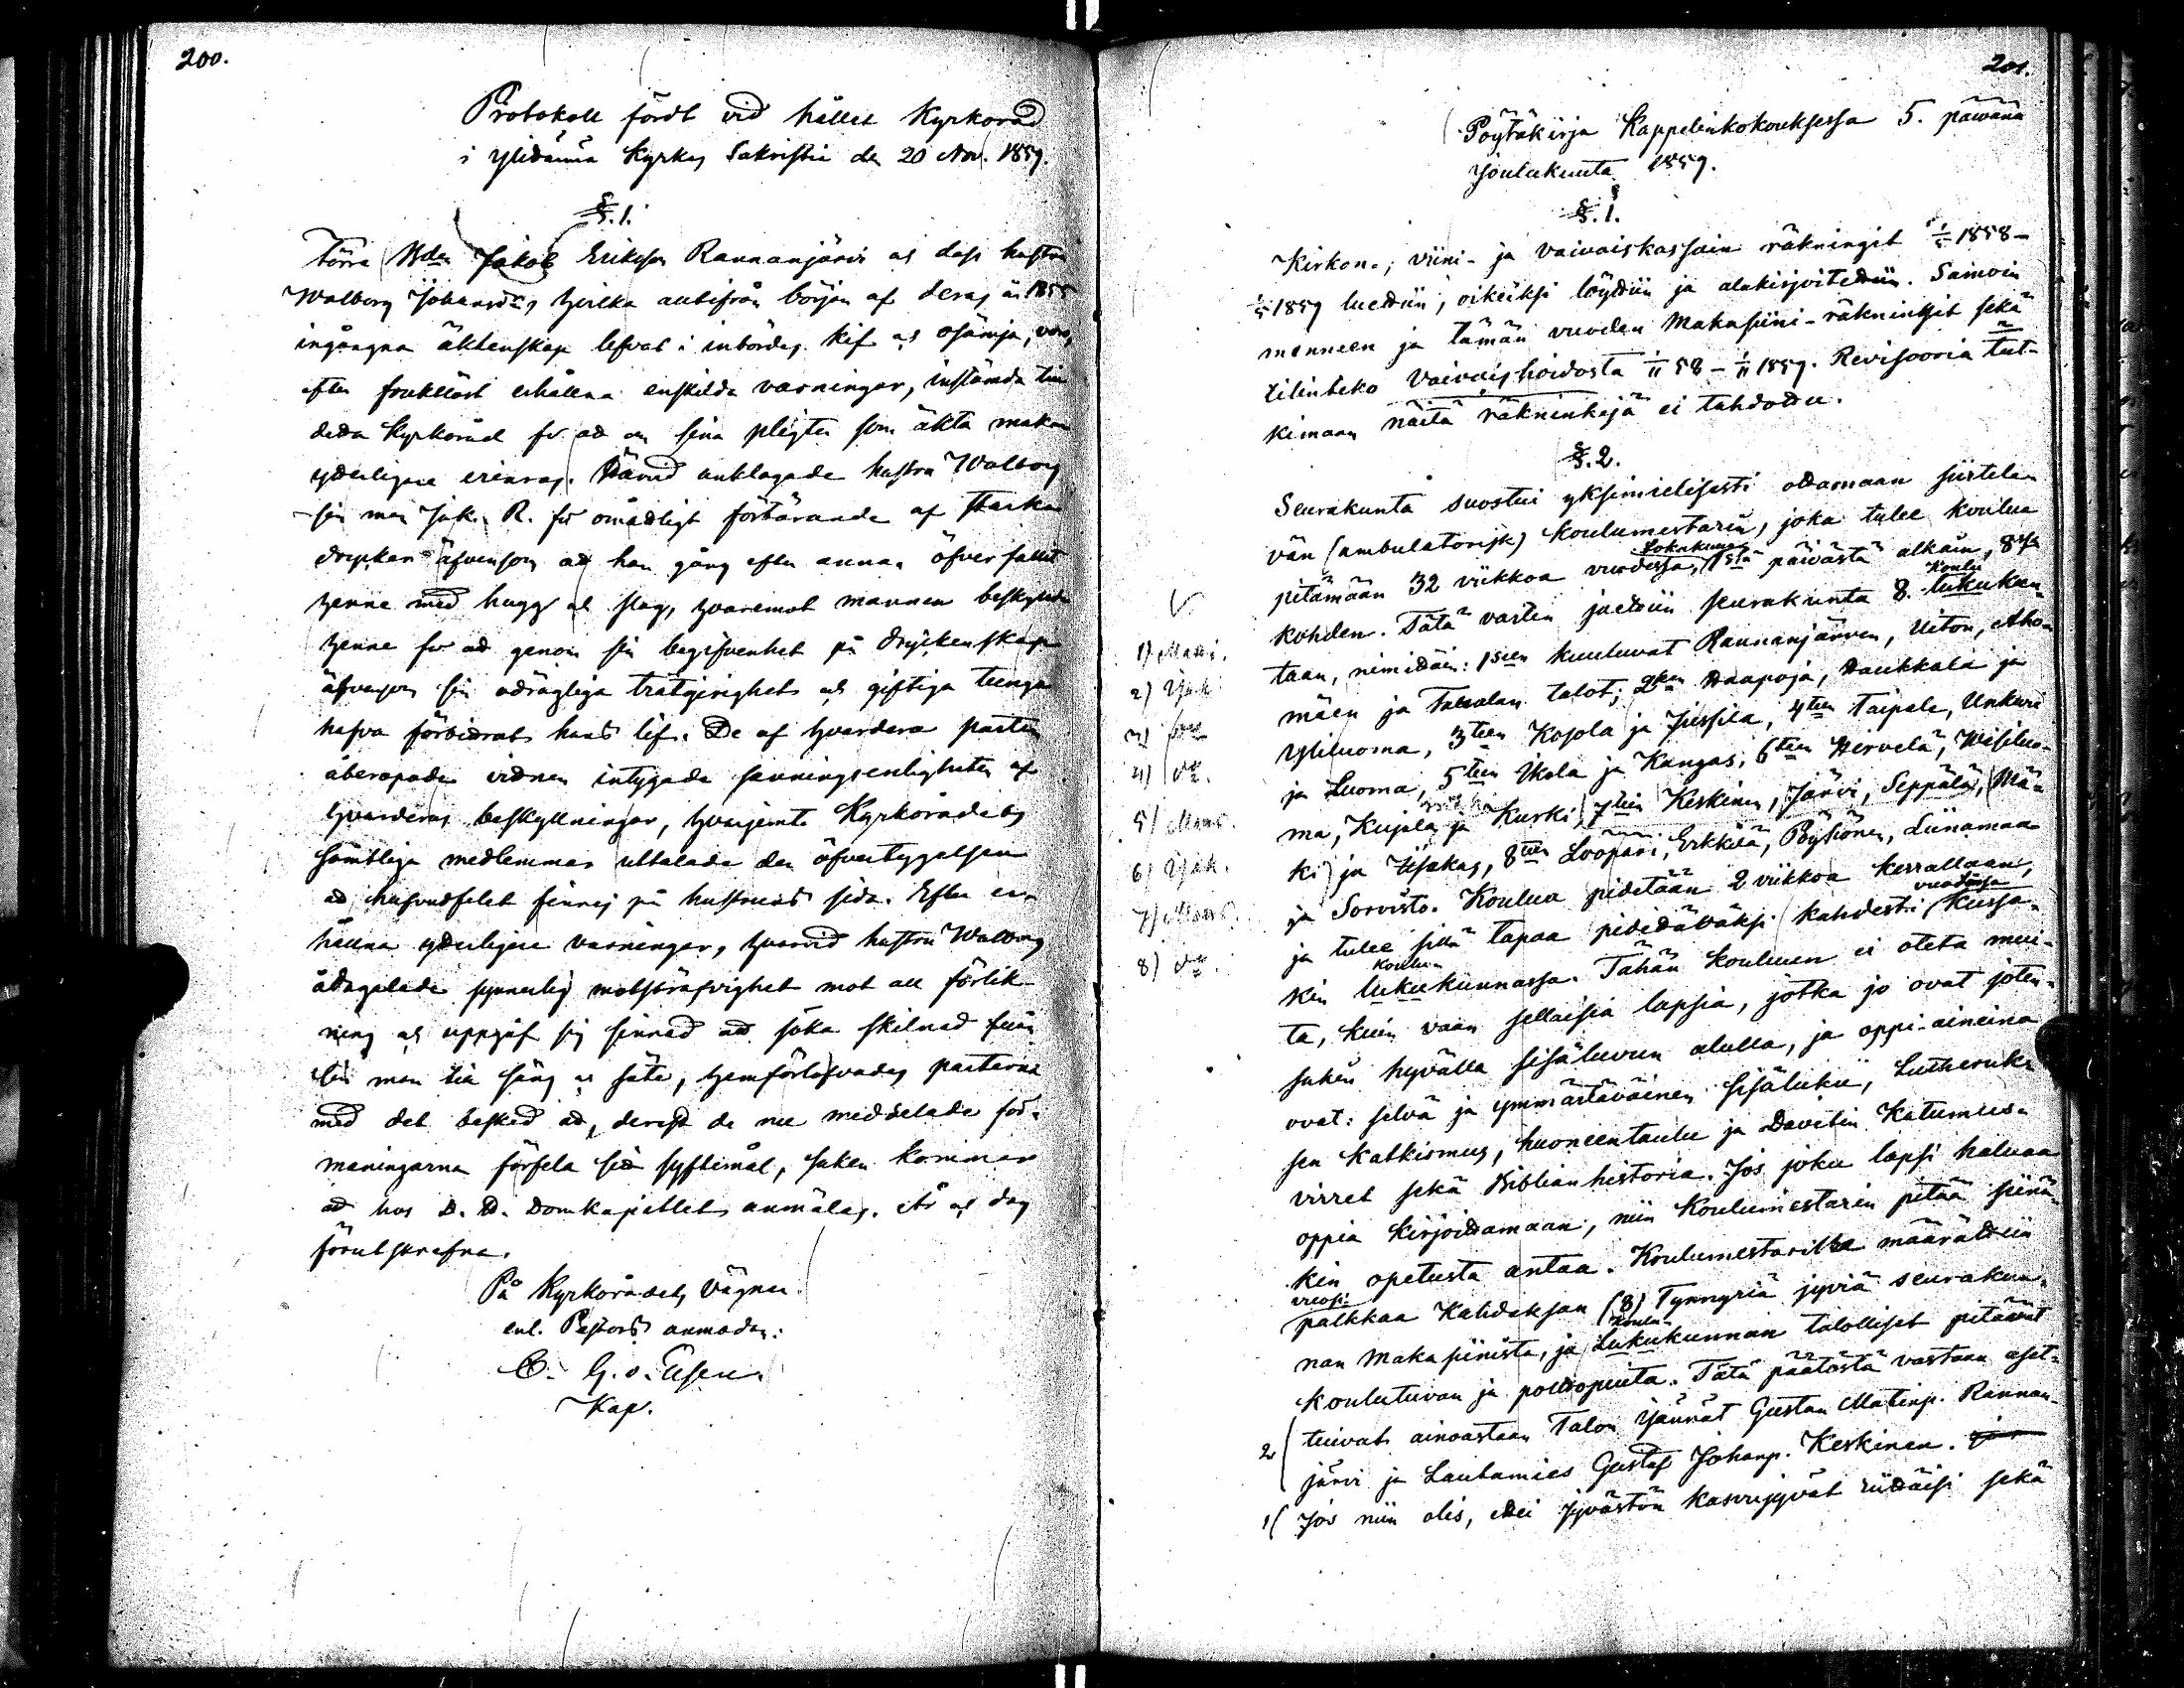 200.
Protokoll fördt vid hållet Kyrkoråd
i Ylistaro Kyrkas Sakristia den 20 Nov. 1859.
§. 1.
Förra Bden Jakob Eriksson Rannanjärvi och dess hustru
Walborg Johansdr, hvilka alltifrån början af deras år 1855
ingångna äktenskap lefvat i inbördes kif och osämja, voro,
efter fruktlöst erhållna enskilda varningar, instämda till
detta Kyrkoråd för att om sina pligter som äkta makar
ytterligare erinras. Härvid anklagade hustru Walborg
sin man Jak. R. för omåttligt förtärande af starka
drycker äfvensom att han gång efter annan öfverfallit
henne med hugg och slag, hvaremot mannen beskyllde
henne för att genom sin begifvenhet på dryckenskap
äfvensom sin odrägliga trätgirighet och giftiga tunga
hafva förbittrat hans lif. De af hvardera parten
åberopade vidnen intygade sanningsenligheten af
hvarderas beskyllningar, hvarjemte Kyrkorådets
samtliga medlemmar uttalade den öfvertygelsen
att hufvudfelet finnes på hustruns sida. Efter er-
hållna ytterligare varningar, hvarvid hustru Walborg
ådagalade synnerlig motsträfvighet mot all förlik-
ning och uppgaf sig sinnad att söka skilnad från
sin man till säng och säte, hemförlofvades parterna
med det besked att, derest de nu meddelade för-
maningarna förfela sitt syftemål, saken kommer
att hos D. D. Domkapitlet anmälas. År och dag
förutskrefne.
På Kyrkorådets vägnar
enl. Pastors anmodan:
C. G. v. Essen.
Kap.
201.
Pöytäkirja Kappelinkokouksessa 5. päivänä
Joulukuuta 1859.
§. 1.
Kirkon-, viini- ja vaivaiskassain räkningit 1/5 1858 -
1/5 1859 luettiin, oikeiksi löyttiin ja alakirjoitettiin. Samoin
menneen ja tämän vuoden Makasiini-räkningit sekä
tilinteko Vaivaishoidosta 1/11 58 - 1/11 1859. Revisooria tut-
kimaan näitä räkninkejä ei tahdottu.
§. 2.
Seurakunta suostui yksimielisesti ottamaan siirtele-
vän (ambulatorisk) koulumestarin, joka tulee koulua
Lokakuun
pitämään 32 viikkoa vuodessa, 1stä päivästä alkain, 8ssa
koulu
kohden. Tätä varten jaettiin seurakunta 8. lukukun-
taan, nimittäin: 1seen kuuluvat Rannanjärven, Uiton, Aho-
mäen ja talot; 2een Haapoja, Kaukkala ja
Yliluoma, 3teen Kosola ja Jussila, 4teen Taipale, Unkuri
ja Luoma, 5teen Skola ja Kangas, 6teen Hirvelä, Wesiluo-
ma, Kujala ja Kurki, 7teen Keskinen, Järvi, Seppälä, Mä-
ki ja Iisakas, 8teen Lööpäri, Erkkilä, Pöyhönen, Liinamaa
ja Sorvisto. Koulua pidetään 2 viikkoa kerrallaan,
vuodessa
ja tulee sillä tapaa pidettäväksi kahdesti kussa-
koulu-
kin lukukunnassa. Tähän kouluun ei oteta mui-
ta, kuin vaan sellaisia lapsia, jotka jo ovat joten-
sakin hyvällä sisäluvun alulla, ja oppi-aineina
ovat: selvä ja ymmärtäväinen sisäluku, Lutheruk-
sen Katkismus, huoneentaulu ja Davetin Katumus-
virret sekä Biblianhistoria. Jos joku lapsi haluaa
oppia kirjoittamaan, niin Koulumestarin pitää siinä-
kin opetusta antaa. Koulumestarille määrättiin
vuosi
palkkaa Kahdeksan (8) Tynnyriä jyviä seurakun-
koulu
nan Makasiinista, ja Lukukunnan talolliset pitäävät
koulutuvan ja polttopuuta. Tätä päätöstä vastaan aset-
2 tuivat ainoastaan Talon Isännät Gustaa Matinp. Rannan-
järvi ja Lautamies Gustaf Johanp. Keskinen.
1 Jos niin olis, ettei Jyvästön kasvujyvät riittäisi sekä
1) Matti.
2) Jak.
3)
4)
5)
6) Jak.
7)
8)